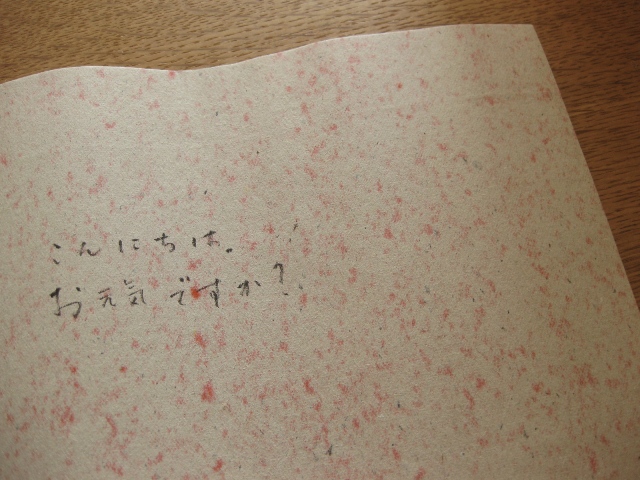 こんにちは。
お元気ですか?